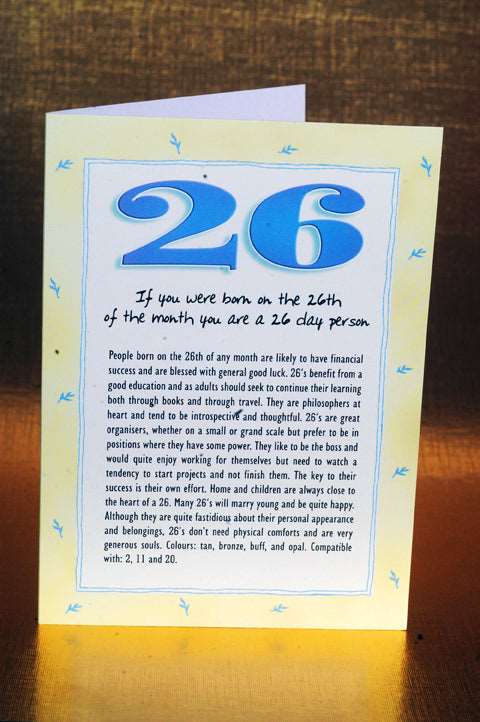 26
If you were born on the 26th
of the month you are a 26 day person
People born on the 26th of any month are likely to have financial
success and are blessed with general good luck. 26's benefit from a
good education and as adults should seek to continue their learning
both through books and through travel. They are philosophers at
heart and tend to be introspective and thoughtful. 26's are great
organisers, whether on a small or grand scale but prefer to be in
positions where they have some power. They like to be the boss and
would quite enjoy working for themselves but need to watch a
tendency to start projects and not finish them. The key to their
success is their own effort. Home and children are always close to
the heart of a 26. Many 26's will marry young and be quite happy.
Although they are quite fastidious about their personal appearance
and belongings, 26's don't need physical comforts and are very
generous souls. Colours: tan, bronze, buff, and opal. Compatible
with: 2, 11 and 20.